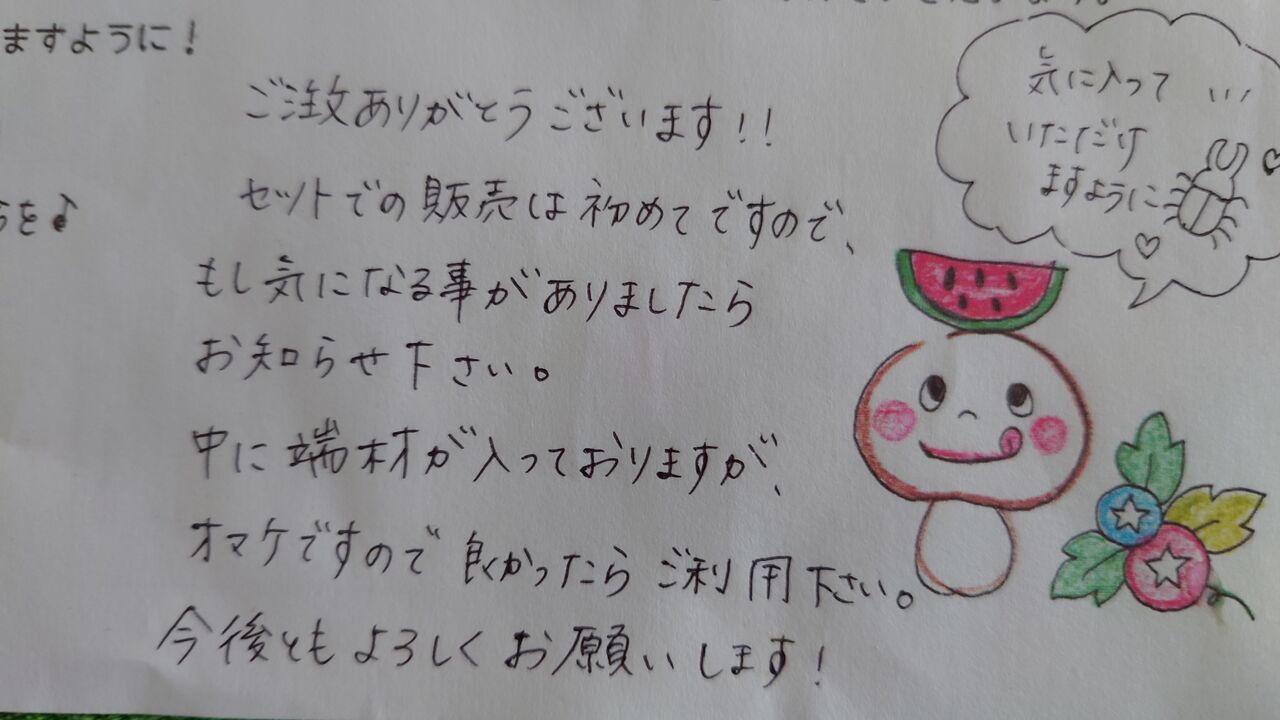 ますように！
ご注文ありがとうございます！！
セットでの販売は初めてですので、
を♪
もし気になる事がありましたら
お知らせ下さい。
中に端材が入っておりますが、
オマケですので良かったらご利用下さい。
今後ともよろしくお願いします！
気に入って
いただけ
ますように